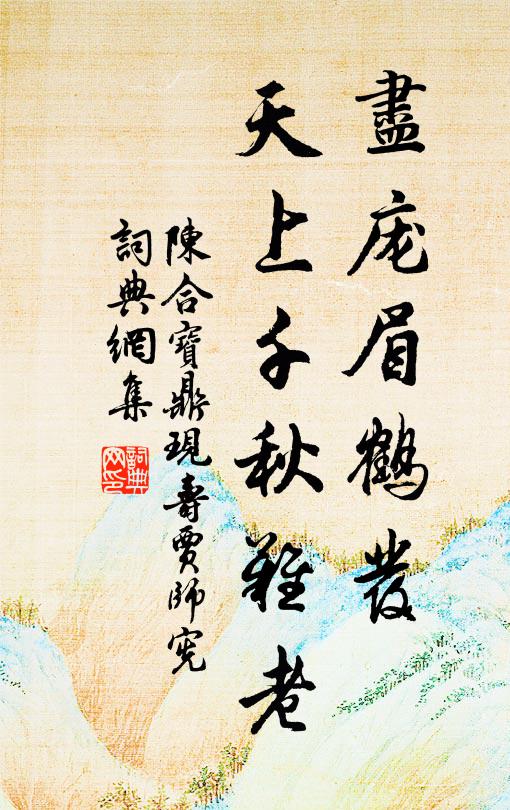 盡庞眉鶴發
天上千秋難老
陳合寶鼎現壽賈師憲
詞典網集
詞典
网印